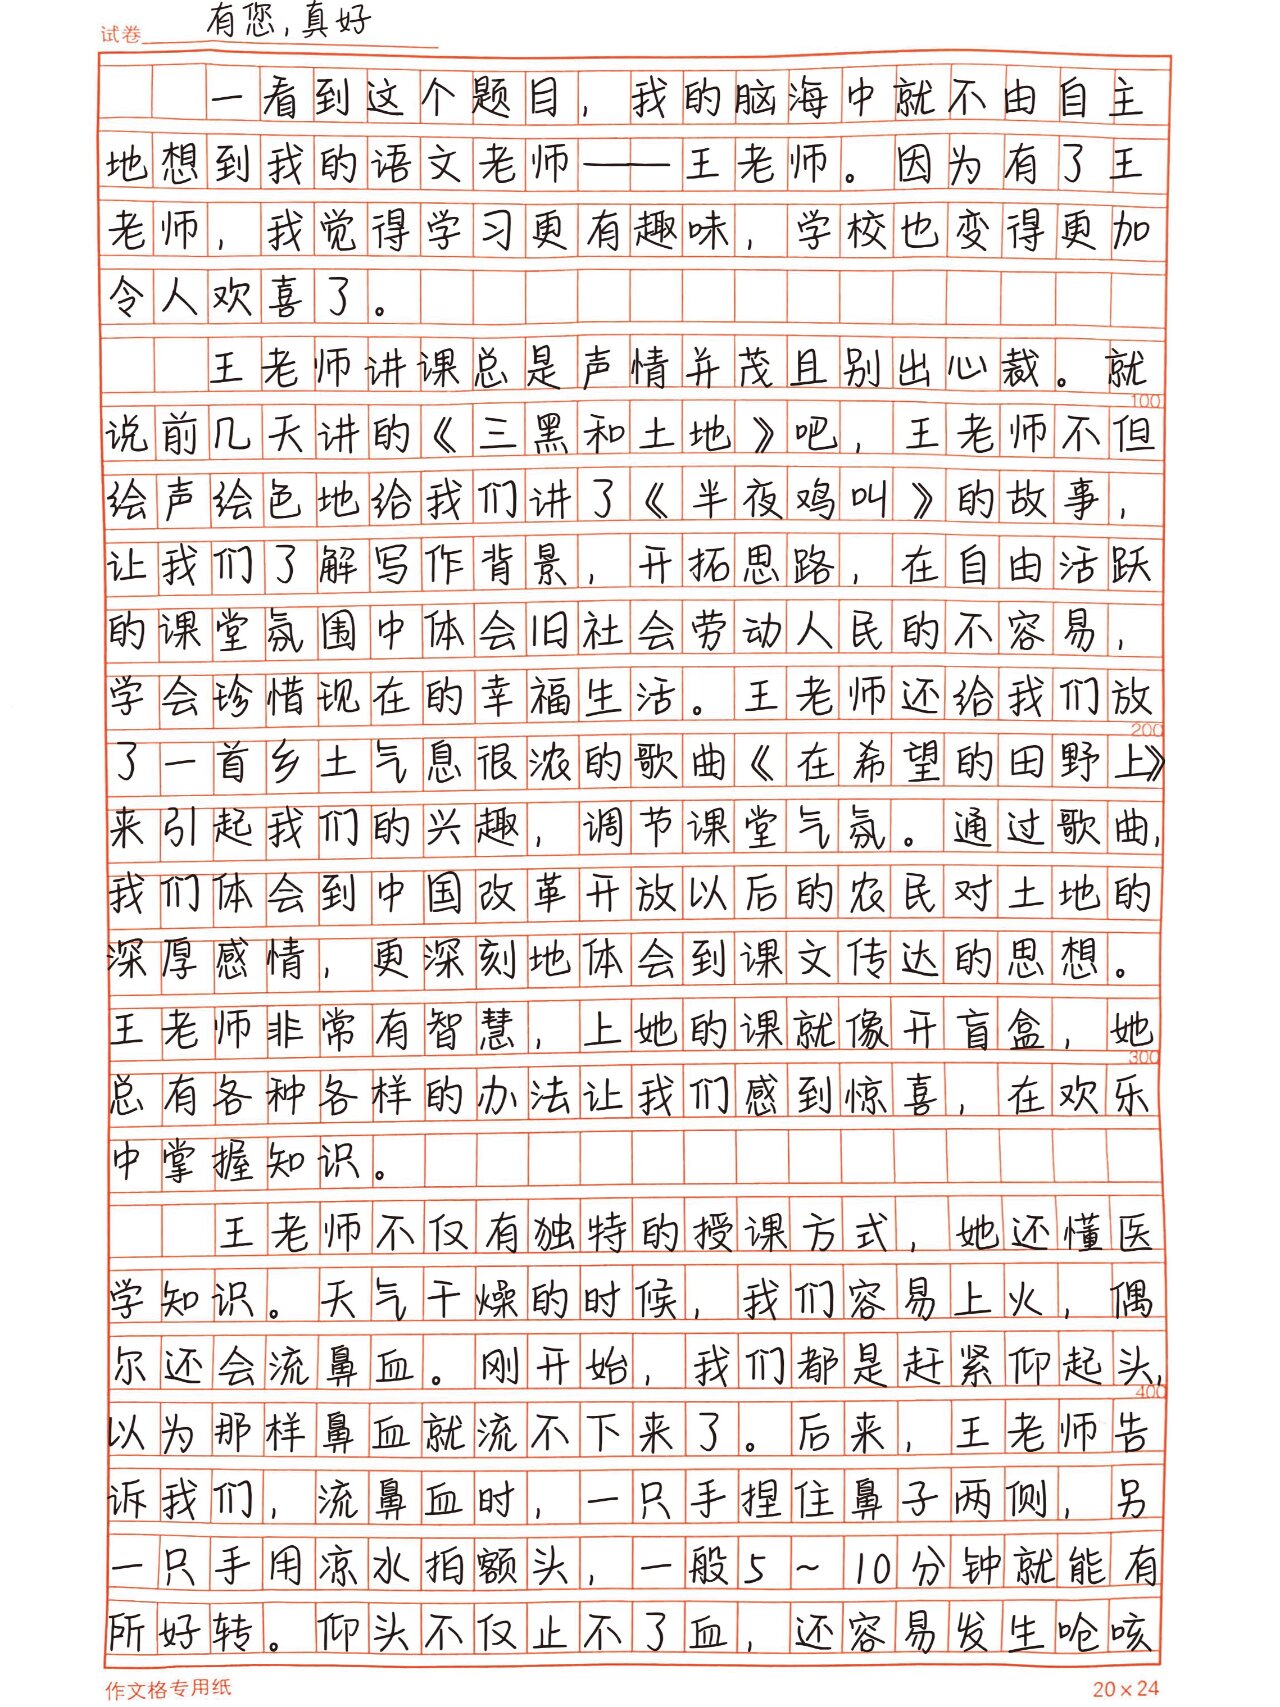 试卷 有您,真好
一看到这个题目,我的脑海中就不由自主
地想到我的语文老师——王老师。因为有了王
老师,我觉得学习更有趣味,学校也变得更加
令人欢喜了。
王老师讲课总是声情并茂且别出心裁。就
100
说前几天讲的《三黑和土地》吧,王老师不但
绘声绘色地给我们讲了《半夜鸡叫》的故事,
让我们了解写作背景,开拓思路,在自由活跃
的课堂氛围中体会旧社会劳动人民的不容易,
学会珍惜现在的幸福生活。王老师还给我们放
200
了一首乡土气息很浓的歌曲《在希望的田野上》
来引起我们的兴趣,调节课堂气氛。通过歌曲,
我们体会到中国改革开放以后的农民对土地的
深厚感情,更深刻地体会到课文传达的思想。
王老师非常有智慧,上她的课就像开盲盒,她
300
总有各种各样的办法让我们感到惊喜,在欢乐
中掌握知识。
王老师不仅有独特的授课方式,她还懂医
学知识。天气干燥的时候,我们容易上火,偶
尔还会流鼻血。刚开始,我们都是赶紧仰起头,
400
以为那样鼻血就流不下来了。后来,王老师告
诉我们,流鼻血时,一只手捏住鼻子两侧,另
一只手用凉水拍额头,一般5~10分钟就能有
所好转。仰头不仅止不了血,还容易发生呛咳
作文格专用纸 20×24